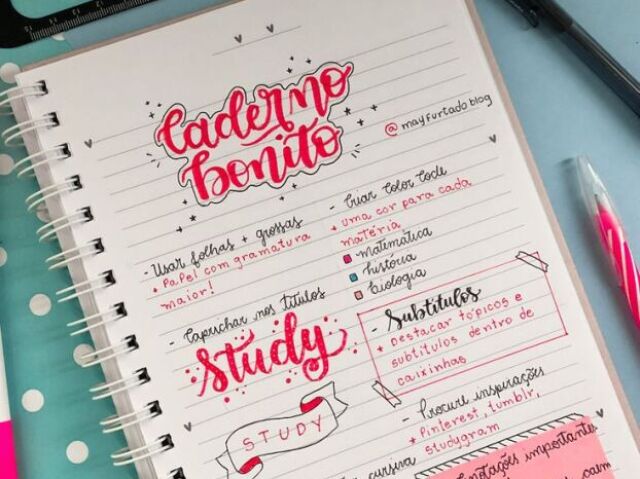 Caderno
bonito
@mayfurtadoblog
- Usar folhas + grossas
+ Papel com gramatura
maior!
- Criar Color Code
+ uma cor para cada
matéria
matemática
história
biologia
- Capuchar nos títulos
Study
STUDY
- Subtítulos
+ Destacar tópicos e
subtítulos dentro de
caixinhas
- Procure inspirações
+ Pinterest, tumblr,
studygram
cursiva
Anotações importantes